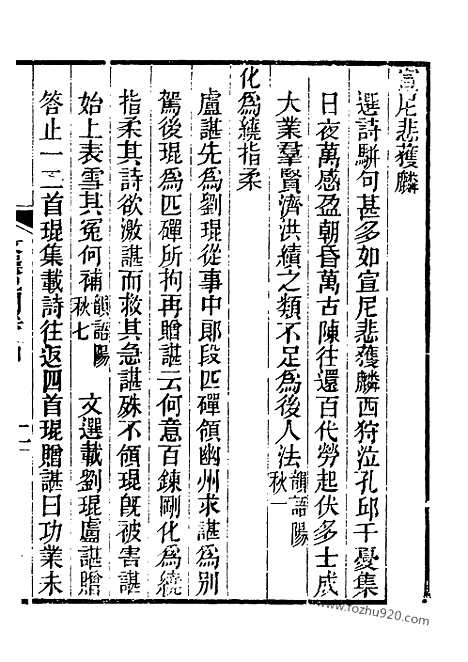 宣尼悲獲麟
選詩駢句甚多如宣尼悲獲麟西狩泣孔邱千憂集
日夜萬感盈朝昏萬古陳往還百代勞起伏多士成
大業羣賢濟洪績之類不足為後人法韻語陽秋一
化為繞指柔
盧諶先為劉琨從事中郞段匹磾領幽州求諶為別
駕後琨為匹磾所拘再贈諶云何意百鍊剛化為繞
指柔其詩欲激諶而救其急諶殊不領琨旣被害諶
始上表雪其冤何補韻語陽秋七 文選載劉琨盧諶贈
答止一二首琨集載詩往返四首琨贈諶曰功業未
www.fozhu920.com